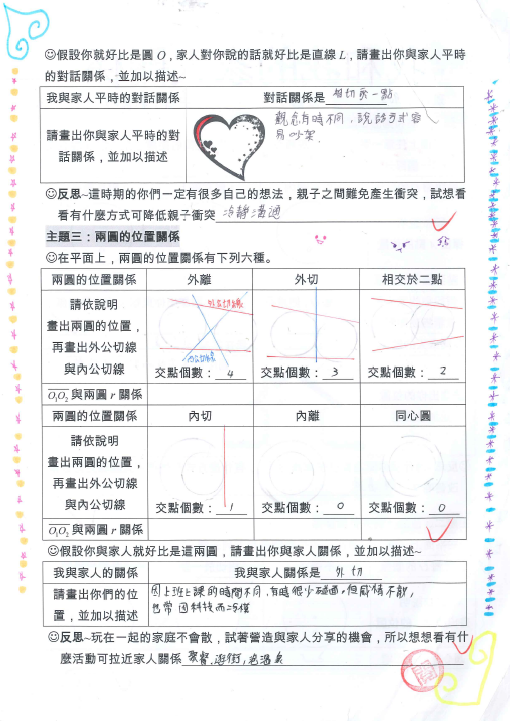 ☺假設你就好比是圓 O，家人對你說的話就好比是直線 L，請畫出你與家人平時
的對話關係，並加以描述~
我與家人平時的對話關係 對話關係是 相切於一點
請畫出你與家人平時的對
話關係，並加以描述
觀念有時不同，說話方式容
易吵架
☺反思~這時期的你們一定有很多自己的想法。親子之間難免產生衝突，試想看
看有什麼方式可降低親子衝突 冷靜溝通
主題三：兩圓的位置關係
☺在平面上，兩圓的位置關係有下列六種。
兩圓的位置關係 外離 外切 相交於二點
請依說明
畫出兩圓的位置，
再畫出外公切線
與內公切線
外公切線
內公切線
交點個數： 4 交點個數： 3 交點個數： 2
O₁O₂與兩圓 r 關係
兩圓的位置關係 內切 內離 同心圓
請依說明
畫出兩圓的位置，
再畫出外公切線
與內公切線
交點個數： 1 交點個數： 0 交點個數： 0
O₁O₂與兩圓 r 關係
☺假設你與家人就好比是這兩圓，請畫出你與家人關係，並加以描述~
我與家人的關係 我與家人關係是 外切
請畫出你們的位
置，並加以描述
因上班上課的時間不同，有時很少碰面，但感情不散，
也常因科技而
☺反思~玩在一起的家庭不會散，試著營造與家人分享的機會，所以想想看有什
麼活動可拉近家人關係 聚餐、逛街、泡溫泉